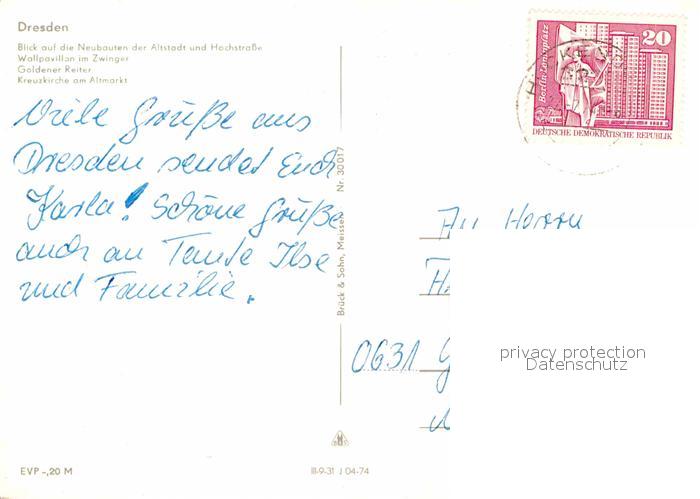 Dresden
Blick auf die Neubauten der Altstadt und Hochstraße
Wallpavillon im Zwinger
Goldener Reiter
Kreuzkirche am Altmarkt
Viele Grüße aus
Dresden sendet Euch
Karla! Schöne Grüße
auch an Tante Ilse
und Familie.
Brück & Sohn, Meissen Nr. 30017
20
Berlin-Leninplatz
DEUTSCHE DEMOKRATISCHE REPUBLIK
An Herrn
0631
privacy protection
Datenschutz
EVP -,20 M
III-9-31 J 04-74